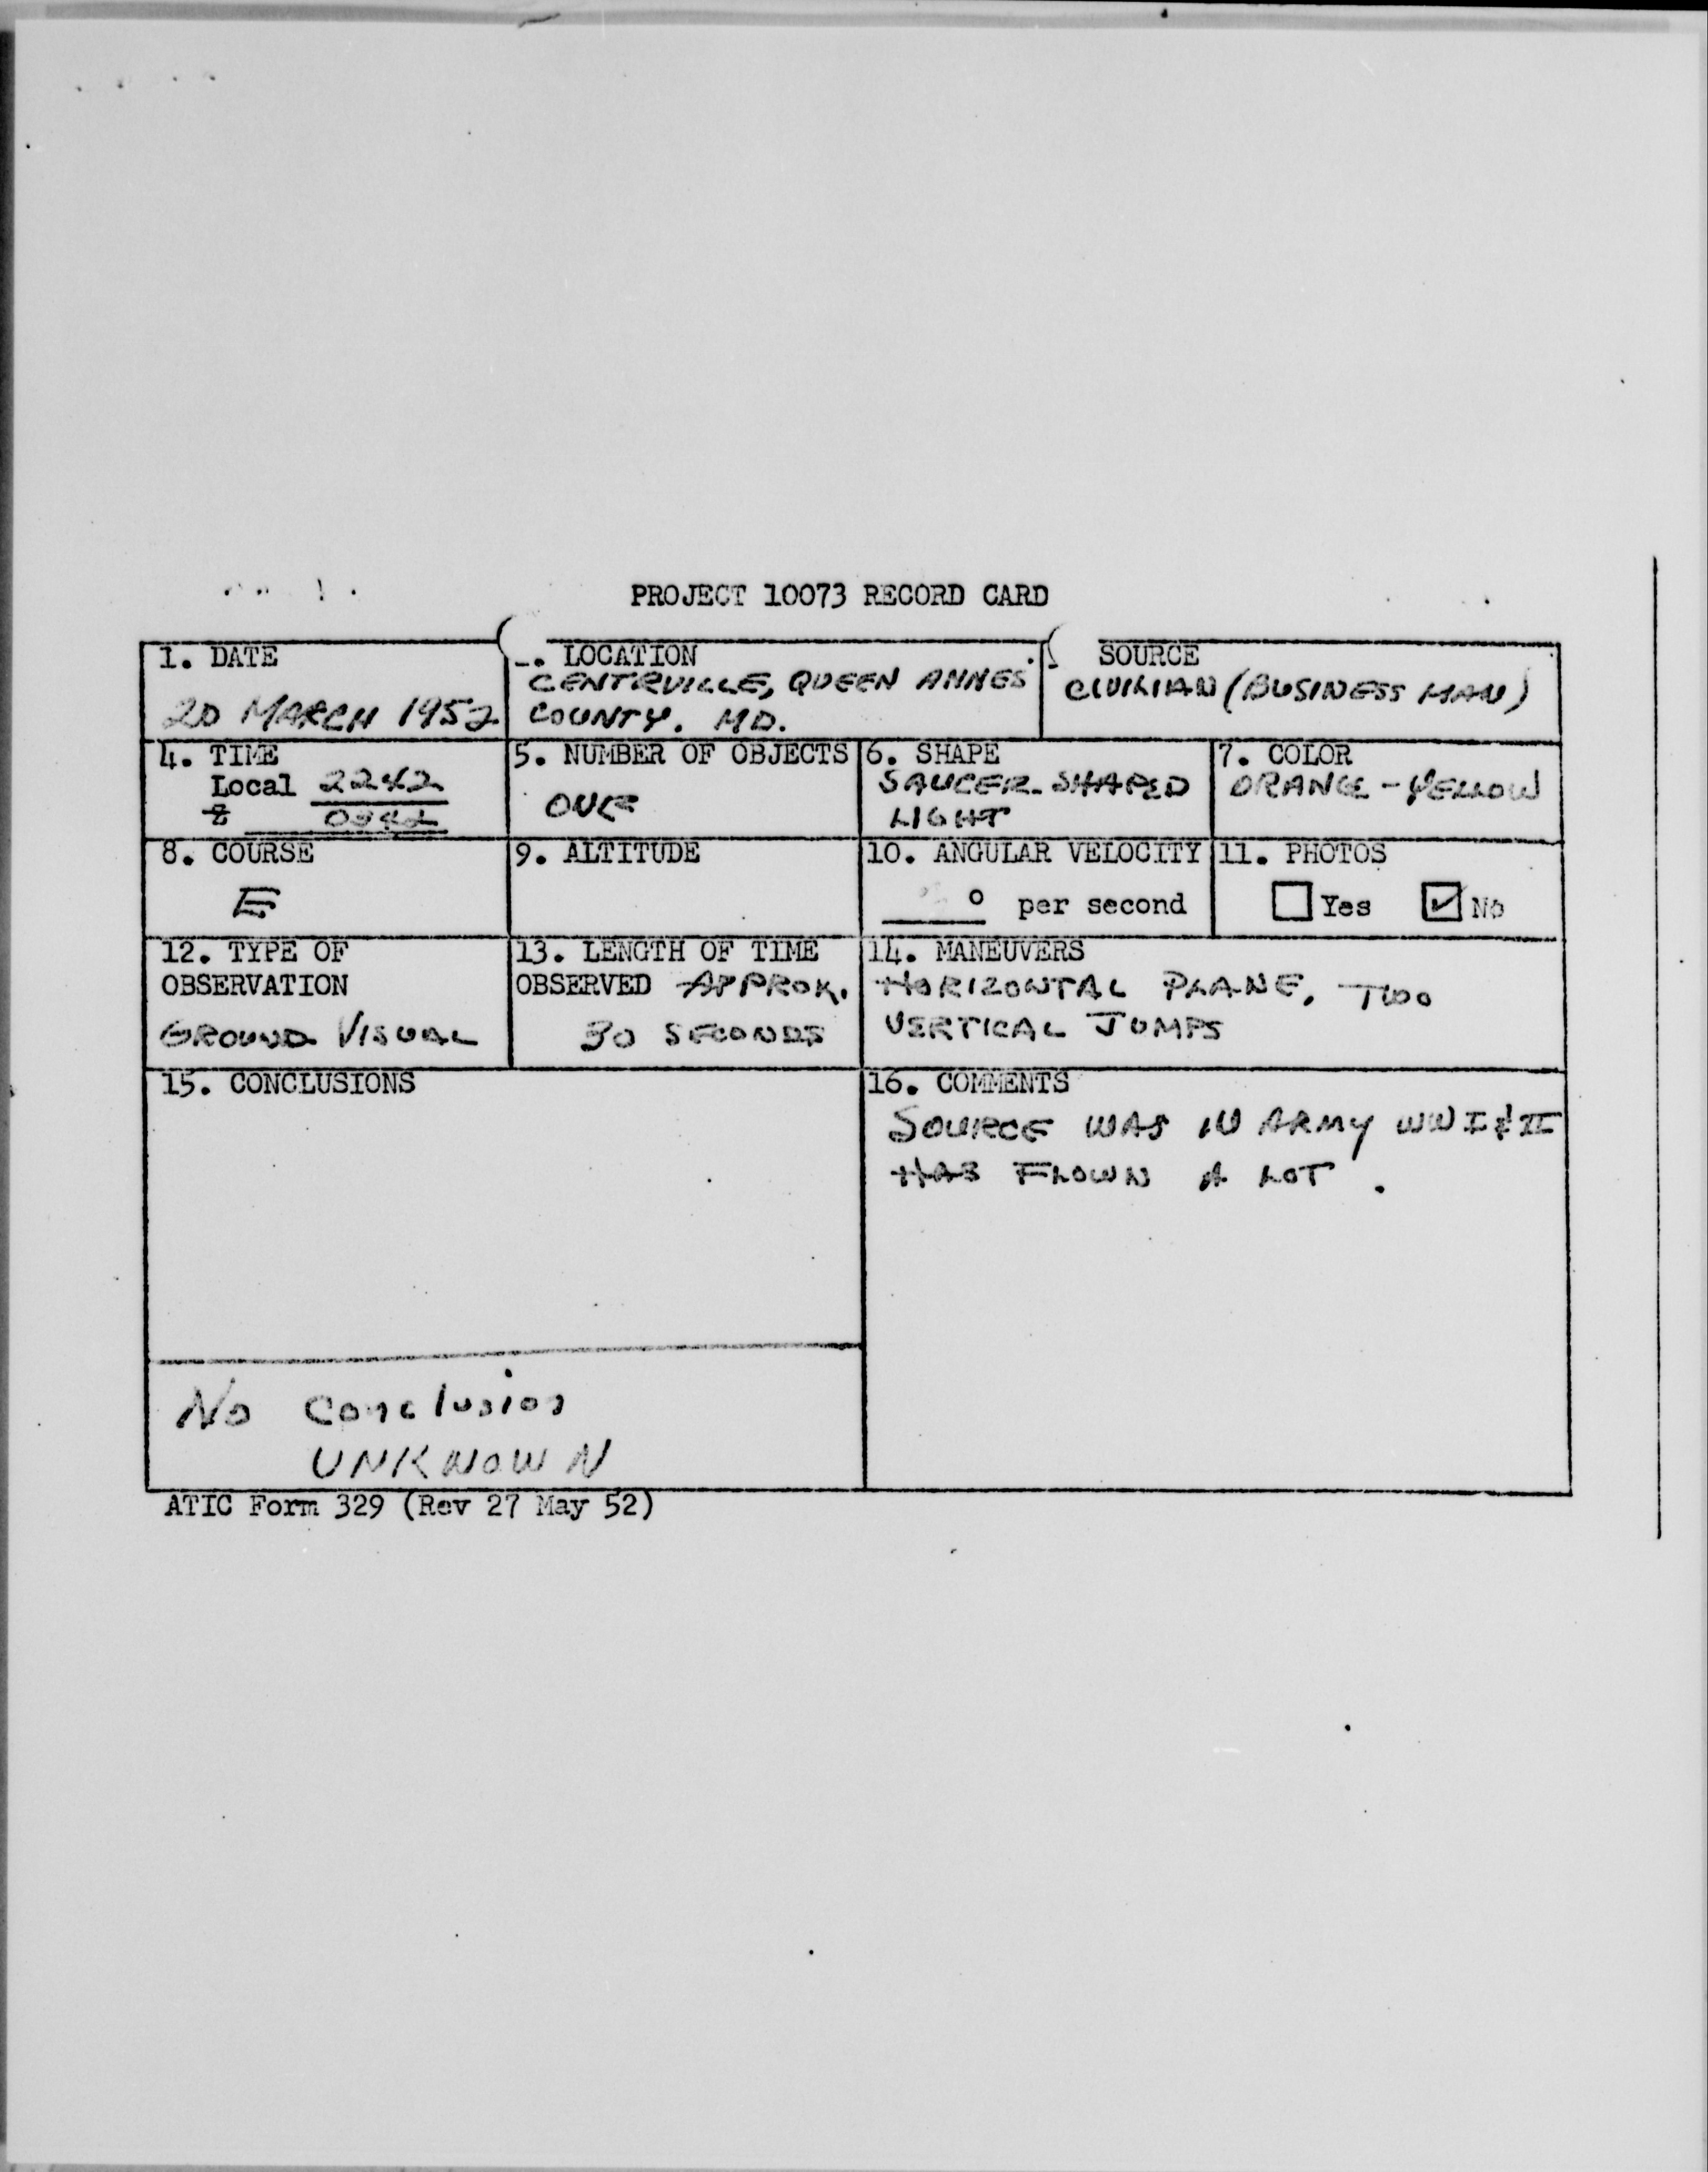 PROJECT 10073 RECORD CARD
1. DATE
20 MARCH 1952
LOCATION
CENTREVILLE, QUEEN ANNES
COUNTY. MD.
SOURCE
CIVILIAN (BUSINESS MAN)
4. TIME
Local 2242
Z 0342
5. NUMBER OF OBJECTS
ONE
6. SHAPE
SAUCER-SHAPED
LIGHT
7. COLOR
ORANGE - YELLOW
8. COURSE
E
9. ALTITUDE
10. ANGULAR VELOCITY
° per second
11. PHOTOS
Yes No
12. TYPE OF
OBSERVATION
GROUND VISUAL
13. LENGTH OF TIME
OBSERVED APPROX.
30 SECONDS
14. MANEUVERS
HORIZONTAL PLANE, TWO
VERTICAL JUMPS
15. CONCLUSIONS
No Conclusion
UNKNOWN
16. COMMENTS
SOURCE WAS IN ARMY WW I & II
HAS FLOWN A LOT.
ATIC Form 329 (Rev 27 May 52)